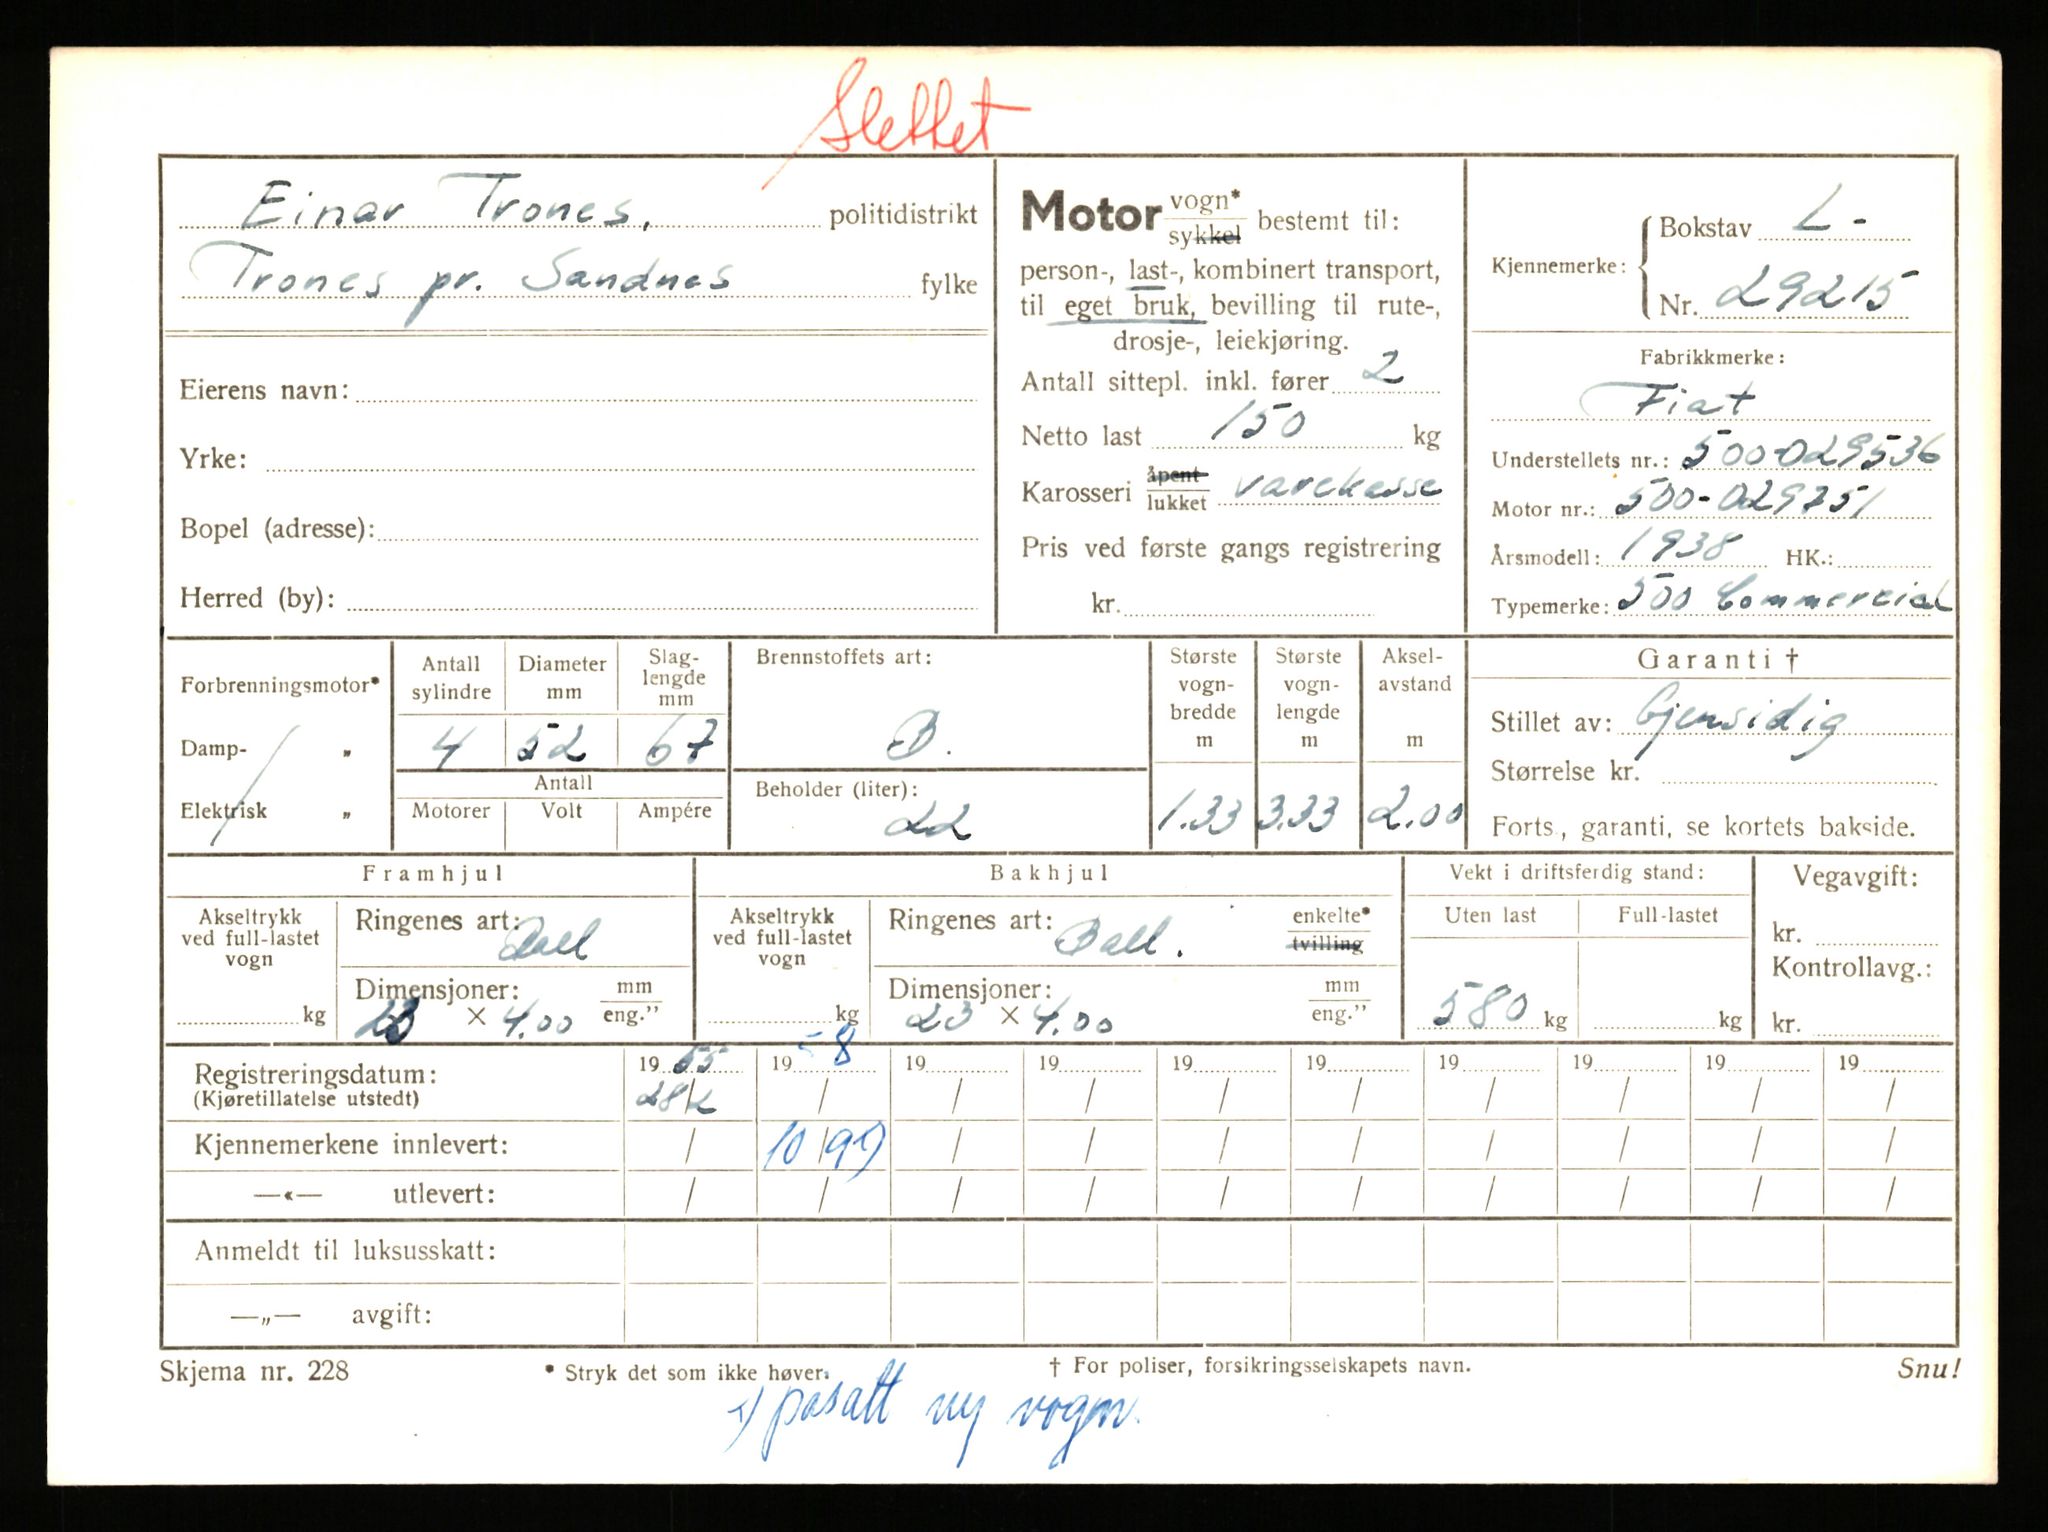 Slettet
Einar Trones, politidistrikt
Trones pr. Sandnes fylke
Eierens navn:
Yrke:
Bopel (adresse):
Herred (by):
Motor vogn* / sykkel bestemt til:
person-, last-, kombinert transport,
til eget bruk, bevilling til rute-,
drosje-, leiekjøring.
Antall sittepl. inkl. fører 2
Netto last 150 kg
Karosseri åpent / lukket varekasse
Pris ved første gangs registrering
kr.
Kjennemerke: Bokstav L-
Nr. 29215
Fabrikkmerke:
Fiat
Understellets nr.: 500-029536
Motor nr.: 500-029751
Årsmodell: 1938 HK.:
Typemerke: 500 Commercial
Forbrenningsmotor*
Damp- „
Elektrisk „
Antall sylindre
4
Diameter mm
52
Slag-lengde mm
67
Antall
Motorer Volt Ampére
Brennstoffets art:
B.
Beholder (liter):
22
Største vogn-bredde m
1.33
Største vogn-lengde m
3.33
Aksel-avstand m
2.00
Garanti †
Stillet av: Gjensidig
Størrelse kr.
Forts., garanti, se kortets bakside.
Framhjul
Akseltrykk
ved full-lastet
vogn
kg
Ringenes art: Ball
Dimensjoner: mm / eng."
23 × 4.00
Bakhjul
Akseltrykk
ved full-lastet
vogn
kg
Ringenes art: Ball. enkelte* / tvilling
Dimensjoner: mm / eng."
23 × 4.00
Vekt i driftsferdig stand:
Uten last Full-lastet
580 kg kg
Vegavgift:
kr.
Kontrollavg.:
kr.
Registreringsdatum: 19 55 19 58 19 19 19 19 19 19 19 19
(Kjøretillatelse utstedt) 28/2 / / / / / / / / /
Kjennemerkene innlevert: / 10/9 1) / / / / / / / /
—«— utlevert: / / / / / / / / / /
Anmeldt til luksusskatt:
—„— avgift:
Skjema nr. 228 * Stryk det som ikke høver. † For poliser, forsikringsselskapets navn. Snu!
1) påsatt ny vogn.